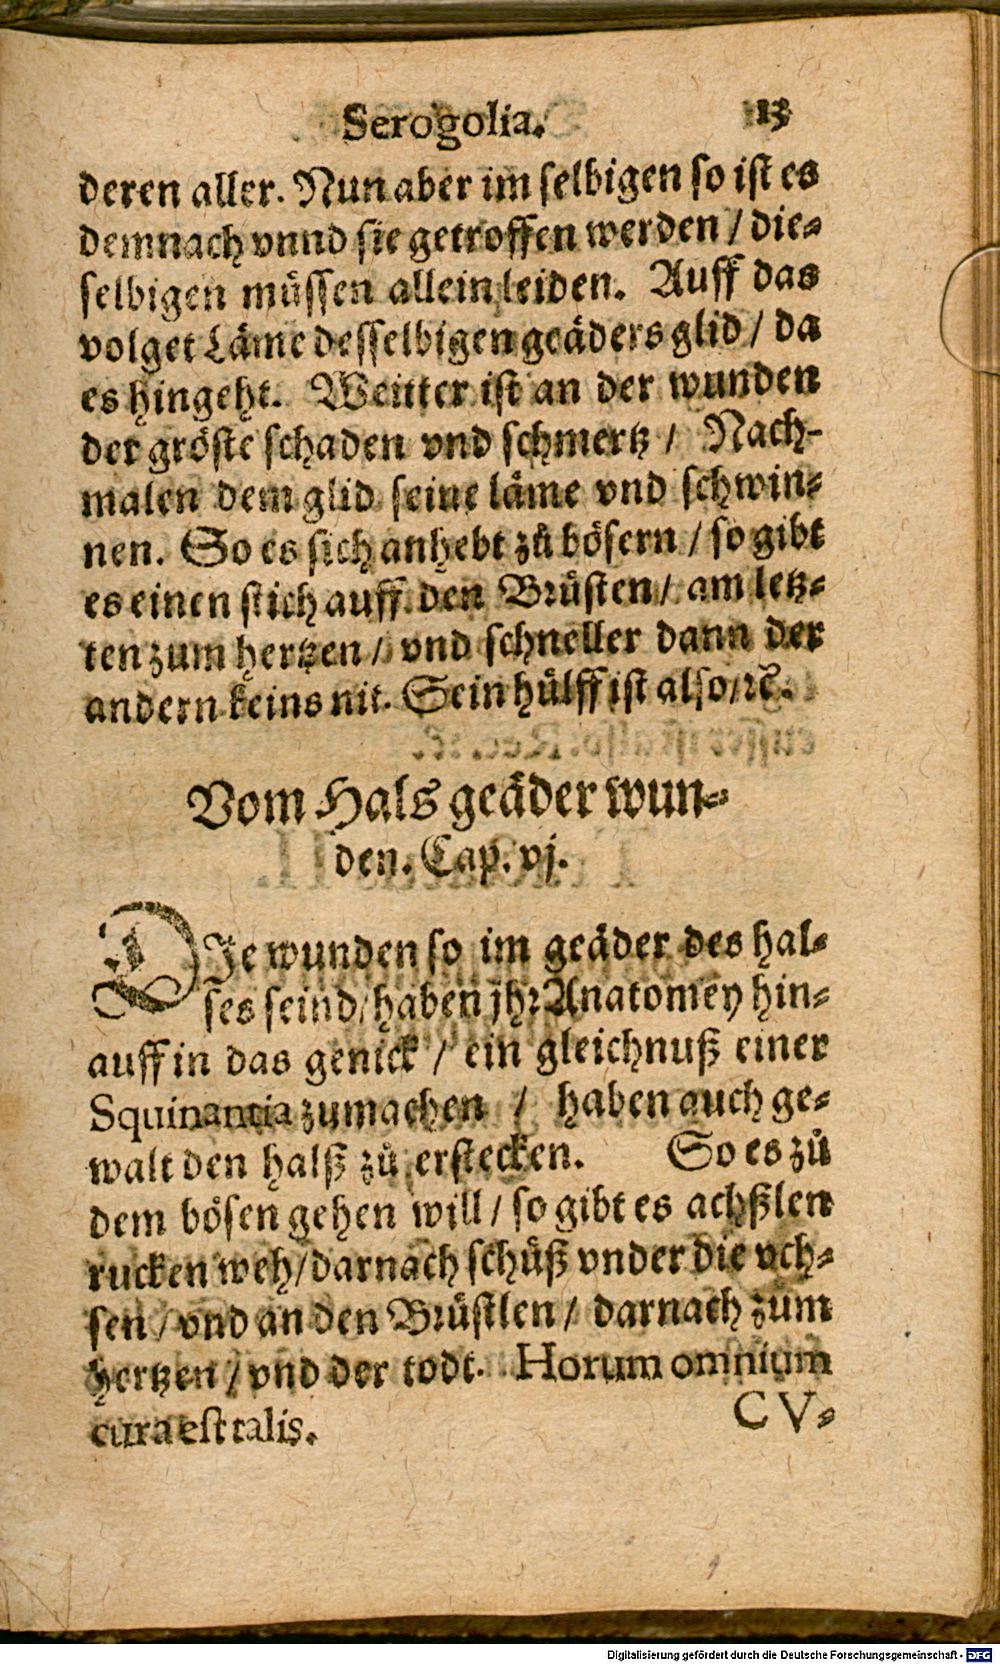 Serogolia. 13
deren aller. Nun aber im selbigen so ist es
demnach vnnd sie getroffen werden / die-
selbigen müssen allein leiden. Auff das
volget Läme desselbigen geäders glid / da
es hingeht. Weitter ist an der wunden
der gröste schaden vnd schmertz / Nach-
malen dem glid seine läme vnd schwin-
nen. So es sich anhebt zů bösern / so gibt
es einen stich auff den Brüsten / am letz-
ten zum hertzen / vnd schneller dann der
andern keins nit. Sein hülff ist also / ꝛc.
Vom Hals geäder wun-
den. Cap. vj.
DIe wunden so im geäder des hal-
ses seind / haben jhr Anatomey hin-
auff in das genick / ein gleichnuß einer
Squinantia zumachen / haben auch ge-
walt den halß zů erstecken. So es zů
dem bösen gehen will / so gibt es achßlen
rucken weh / darnach schüß vnder die vch-
sen / vnd an den Brüstlen / darnach zum
hertzen / vnd der todt. Horum omnium
cura est talis. CV-
Digitalisierung gefördert durch die Deutsche Forschungsgemeinschaft - DFG